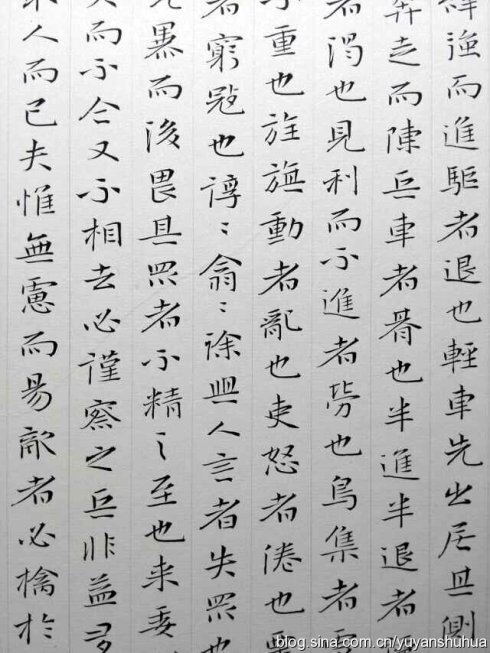 強而進驅者退也輕車先出居其側
奔走而陳兵車者期也半進半退者
者渴也見利而不進者勞也鳥集者
不重也旌旗動者亂也吏怒者倦也
者窮寇也諄〻翕〻徐與人言者失眾也
先暴而後畏其眾者不精之至也来委
而不合又不相去必謹察之兵非益多
人而已夫惟無慮而易敵者必擒於
blog.sina.com.cn/yuyanshuhua